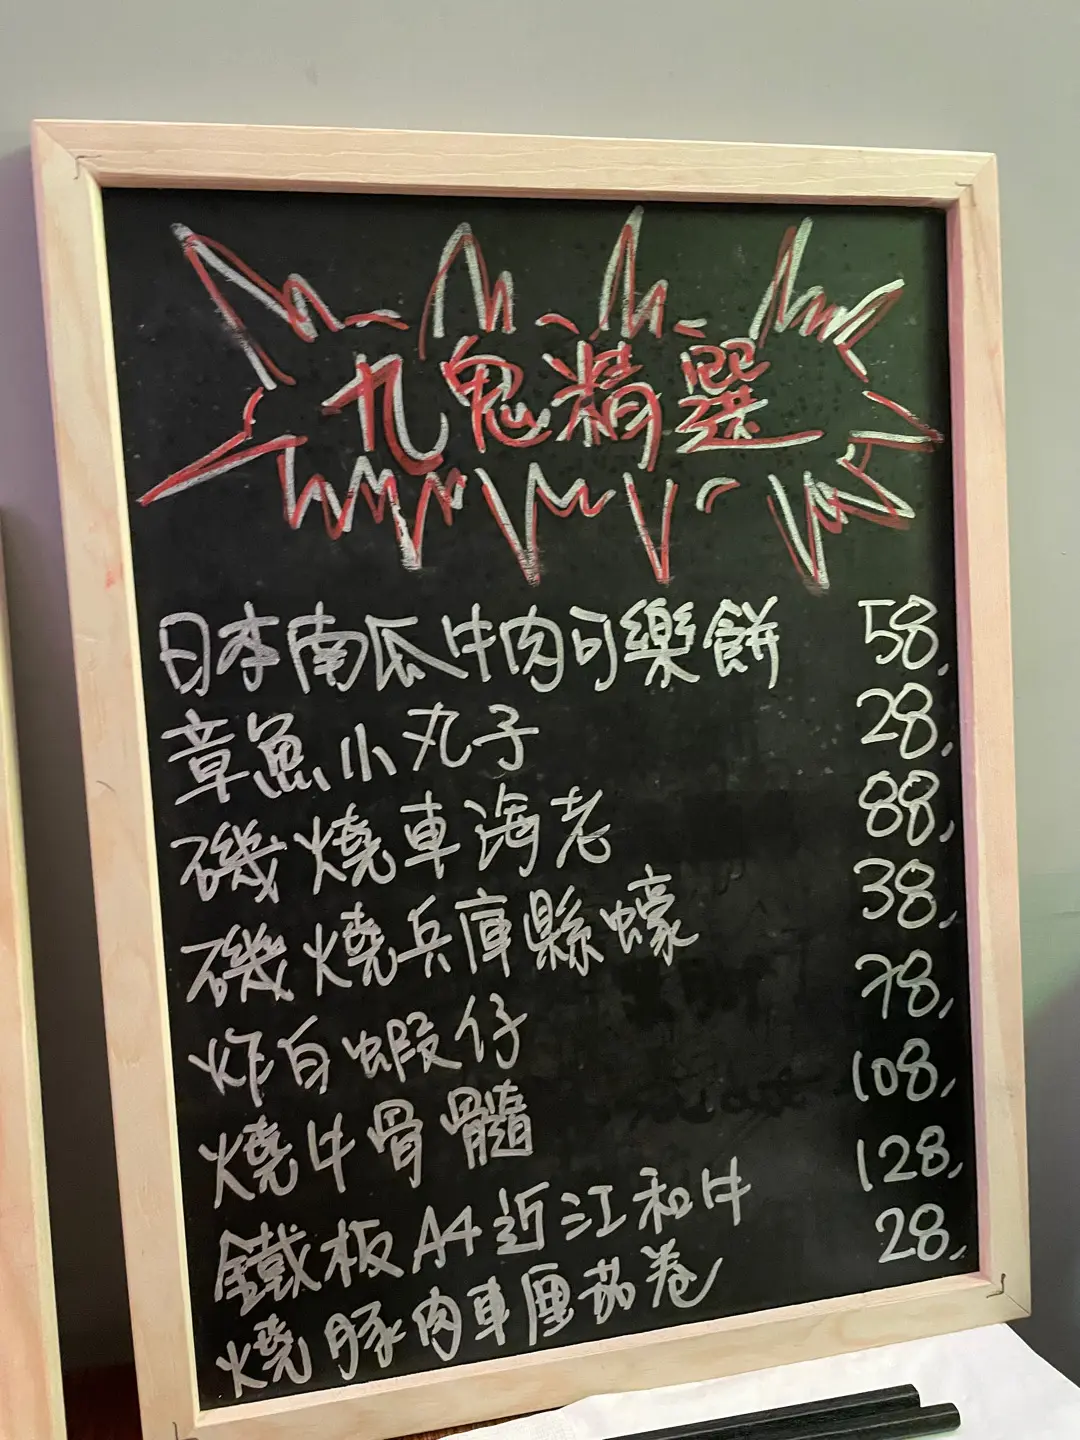 九鬼精選
日本南瓜牛肉可樂餅 58,
章魚小丸子 28,
磯燒車海老 88,
磯燒兵庫縣蠔 38,
炸白蝦仔 78,
燒牛骨髓 108,
鐵板A4近江和牛 128,
燒豚肉車厘茄卷 28,